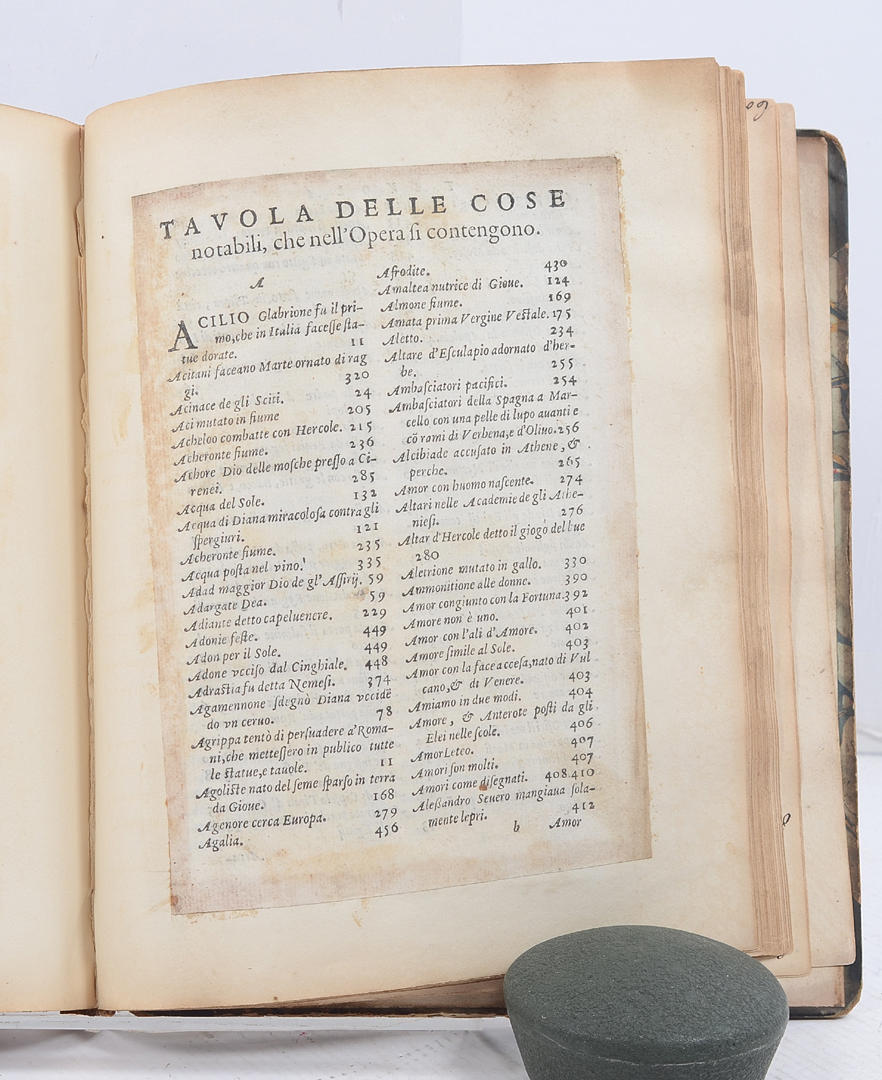 TAVOLA DELLE COSE
notabili, che nell'Opera ſi contengono.
A
ACILIO Glabrione fu il pri-
mo, che in Italia faceſſe ſta-
tue dorate. 11
Acitani faceano Marte ornato di rag
gi. 320
Acinace de gli Sciti. 24
Aci mutato in fiume 205
Acheloo combatte con Hercole. 215
Acheronte fiume. 236
Achore Dio delle moſche preſſo a Ci-
renei. 285
Acqua del Sole. 132
Acqua di Diana miracoloſa contra gli
ſpergiuri. 121
Acheronte fiume. 235
Acqua poſta nel vino. 335
Adad maggior Dio de gl'Aſſirij. 59
Adargate Dea. 59
Adiante detto capeluenere. 229
Adonie feſte. 449
Adon per il Sole. 449
Adone vcciſo dal Cinghiale. 448
Adraſtia fu detta Nemeſi. 374
Agamennone ſdegnò Diana vccidē
do vn ceruo. 78
Agrippa tentò di perſuadere a'Roma-
ni, che metteſſero in publico tutte
le ſtatue, e tauole. 11
Agoliſte nato del ſeme ſparſo in terra
da Gioue. 168
Agenore cerca Europa. 279
Agalia. 456
Afrodite. 430
Amaltea nutrice di Gioue. 124
Almone fiume. 169
Amata prima Vergine Veſtale. 175
Aletto. 234
Altare d'Eſculapio adornato d'her-
be. 255
Ambaſciatori pacifici. 254
Ambaſciatori della Spagna a Mar-
cello con una pelle di lupo auanti e
cō rami di Verbena, e d'Oliuo. 256
Alcibiade accuſato in Athene, &
perche. 265
Amor con huomo naſcente. 274
Altari nelle Academie de gli Athe-
nieſi. 276
Altar d'Hercole detto il giogo del bue
280
Aletrione mutato in gallo. 330
Ammonitione alle donne. 390
Amor congiunto con la Fortuna. 392
Amore non è uno. 401
Amor con l'ali d'Amore. 402
Amore ſimile al Sole. 403
Amor con la face acceſa, nato di Vul
cano, & di Venere. 403
Amiamo in due modi. 404
Amore, & Anterote poſti da gli
Elei nelle ſcole. 406
Amor Leteo. 407
Amori ſon molti. 407
Amori come diſegnati. 408.410
Aleſſandro Seuero mangiaua ſola-
mente lepri. 412
b Amor